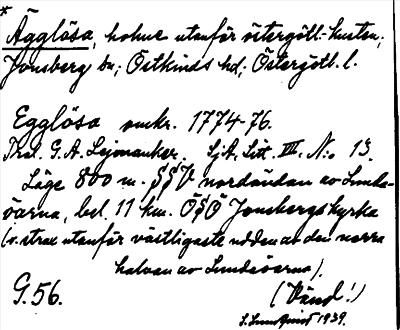 *
Ägglösa, holme utanför östergötl. kusten;
Jonsberg sn; Östkinds hd; Östergötl. l.
Egglösa omkr. 1774-76.
Pral. G. A. Lejonanker. Sj.A. Litt. VII. No 13.
Läge 800 m. S§V nordändan av Lunda-
öarna, bel. 11 km. Ö§Ö Jonsbergs kyrka
(v. strax utanför västligaste udden at den norra
halvan av Lundaöarna).
G. 56.
(Vänd!)
1939.